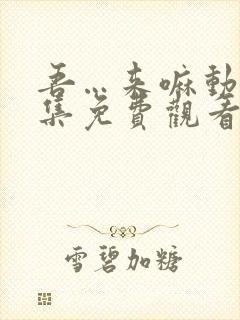 吾…来嘛動
集免費觀看
雪碧加糖